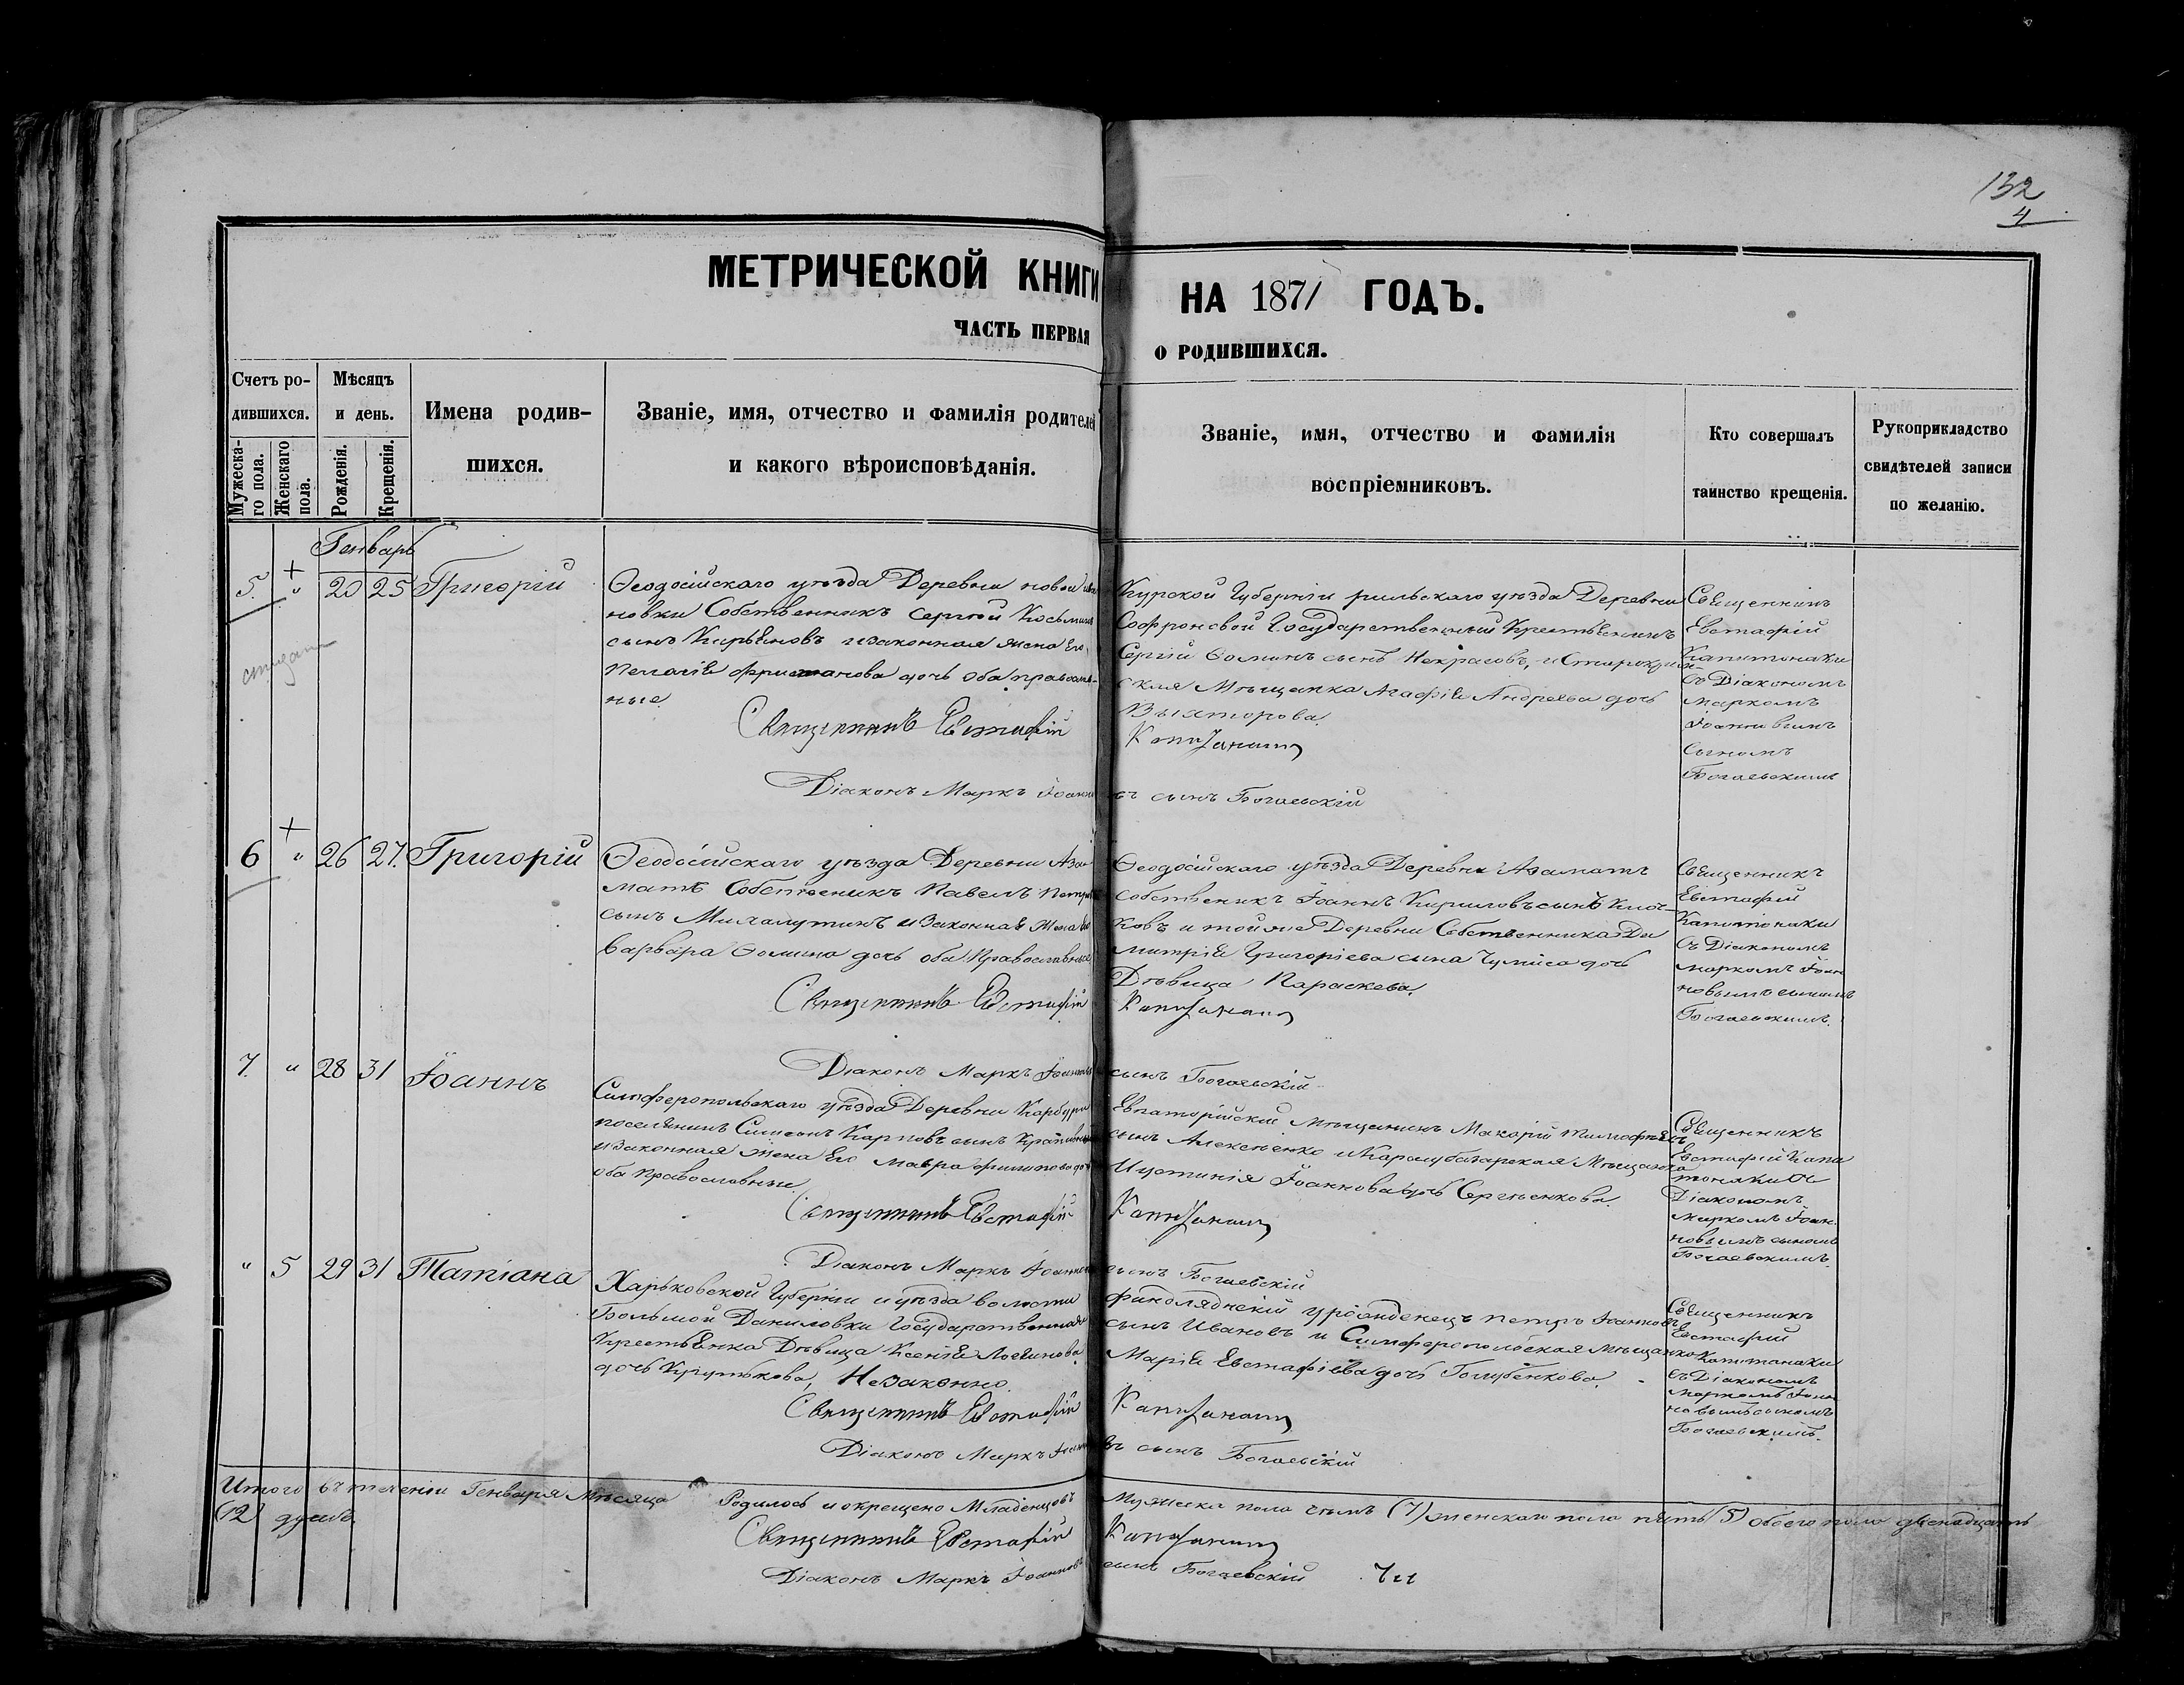 132
4
МЕТРИЧЕСКОЙ КНИГИ НА 1871 ГОДЪ.
ЧАСТЬ ПЕРВАЯ О РОДИВШИХСЯ.
Счетъ родившихся.
Мужескаго пола.
Женскаго пола.
Мѣсяцъ и день.
Рожденія.
Крещенія.
Имена родившихся.
Званіе, имя, отчество и фамилія родителей
и какого вѣроисповѣданія.
Званіе, имя, отчество и фамилія
воспріемниковъ.
Кто совершалъ
таинство крещенія.
Рукоприкладство
свидѣтелей записи
по желанію.
Генварь
5. " 20 25 Григорій
Ѳеодосійскаго уѣзда Деревни новой
новки Собственникъ Сергій Косьминъ
сынъ Кирьяновъ и законная жена Его
Пелагія дочь оба православ-
ные
Курской Губерніи рильскаго уѣзда Деревни
Софроновой Государственный Крестьянинъ
Сергій Ѳоминъ сынъ Некрасовъ, и Старокрим-
ская Мѣщанка Агафія Андрѣева дочь
Священникъ
Евстафій
Капитонаки
съ Діакономъ
маркомъ
Іоанновымъ
сыномъ
Богаевскимъ
Священникъ Евстафій Капитонаки
Діаконъ Маркъ Іоанновъ сынъ Богаевскій
6 " 26 27. Григорій
Ѳеодосійскаго уѣзда Деревни Аза-
матъ Собственикъ Павелъ Петровъ
сынъ и Законная Жена Его
Варвара Ѳомина дочь оба Православные
Ѳеодосійскаго уѣзда Деревни Азаматъ
Собственикъ Іоаннъ Кириловъ сынъ Клоч-
ковъ и тойже Деревни Собственника Ди
митрія Григоріева сына дочь
Дѣвица Параскева.
Священникъ
Евстафій
Капитонаки
съ Діакономъ
маркомъ Іоан
новымъ сыномъ
Богаевскимъ.
Священникъ Евстафій Капитонаки
Діаконъ Маркъ Іоанновъ сынъ Богаевскій
7. " 28 31 Іоаннъ
Симферопольскаго уѣзда Деревни
поселянинъ Симеонъ Карповъ сынъ
и законная жена Его Мавра Филипова дочь
оба православные.
Евпаторійскій Мѣщанинъ Макарій Тимофѣевъ
сынъ Алексѣенко и Карасубазарская Мѣщанка
Иустинія Іоаннова дочь Сергѣенкова.
Священникъ
Евстафій Капи
тонаки съ
Діакономъ
Маркомъ Іоан-
новымъ сыномъ
Богаевскимъ.
Священникъ Евстафій Капитонаки
Діаконъ Маркъ Іоанновъ сынъ Богаевскій
" 5 29 31 Татіана
Харьковской Губерніи и уѣзда волости
Большой Даниловки Государственная
Крестьянка Дѣвица Ксенія Логвинова
дочь Крутькова, Незаконно.
Финдляднскій Петръ Іоанновъ
сынъ Ивановъ и Симферопольская мѣщанка
Марія Евстафіева дочь Голубенкова.
Священникъ
Евстафій
Капитанаки
съ Діакономъ
Маркомъ Іоан
новымъ сыномъ
Богаевскимъ.
Священникъ Евстафій Капитонаки
Діаконъ Маркъ Іоанновъ сынъ Богаевскій
Итого въ теченіи Генваря Мѣсяца Родилось и окрещено Младенцовъ Мужеска пола семь (7) женскаго пола пять (5) обоего пола двенадцать
(12) душъ.
Священникъ Евстафій Капитонаки
Діаконъ Маркъ Іоанновъ сынъ Богаевскій